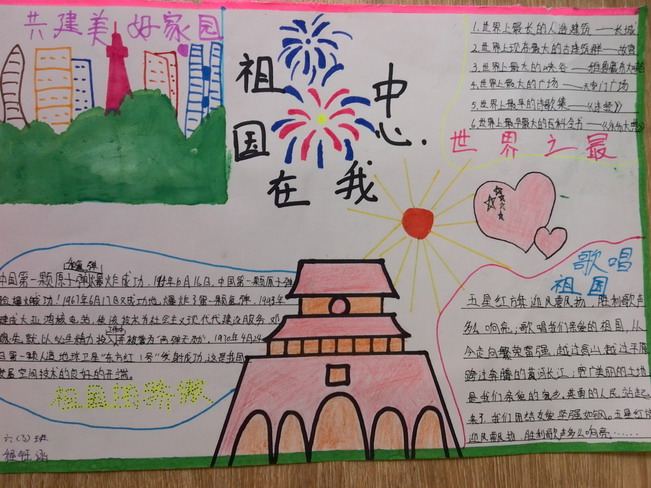 共建美好家园
祖国在我
中心.
1.世界上最长的人造建筑——长城
2.世界上现存最大的古建筑群——故宫
3.世界上最大的峡谷——雅鲁藏布大
4.世界上最大的广场——天安门广场
5.世界上最早的诗歌集——《诗经》
6.世界上最早最大的百科全书——《永乐大
世界之最
歌唱
祖国
五星红旗迎风飘扬,胜利歌声
多么响亮;歌唱我们亲爱的祖国,从
今走向繁荣富强.越过高山,越过平原
跨过奔腾的黄河长江;宽广美丽的土地
是我们亲爱的家乡,英勇的人民站起
来了,我们团结友爱坚强如钢.五星红旗
迎风飘扬,胜利歌声多么响亮……
中国第一颗原子弹爆炸成功,16日,中国第一颗原子弹
爆炸成功!1967年6月17日又成功地爆炸了第一颗氢弹,
大亚湾核电站,使该技术为社会主义现代代建设服务.
默以似生精力投入,被誉为"两弹元勋",1970年4月24
日第一颗人造地球卫星"东方红1号"发射成功,这是我国
发展空间技术的良好的开端.
祖国的骄傲
六(3)班